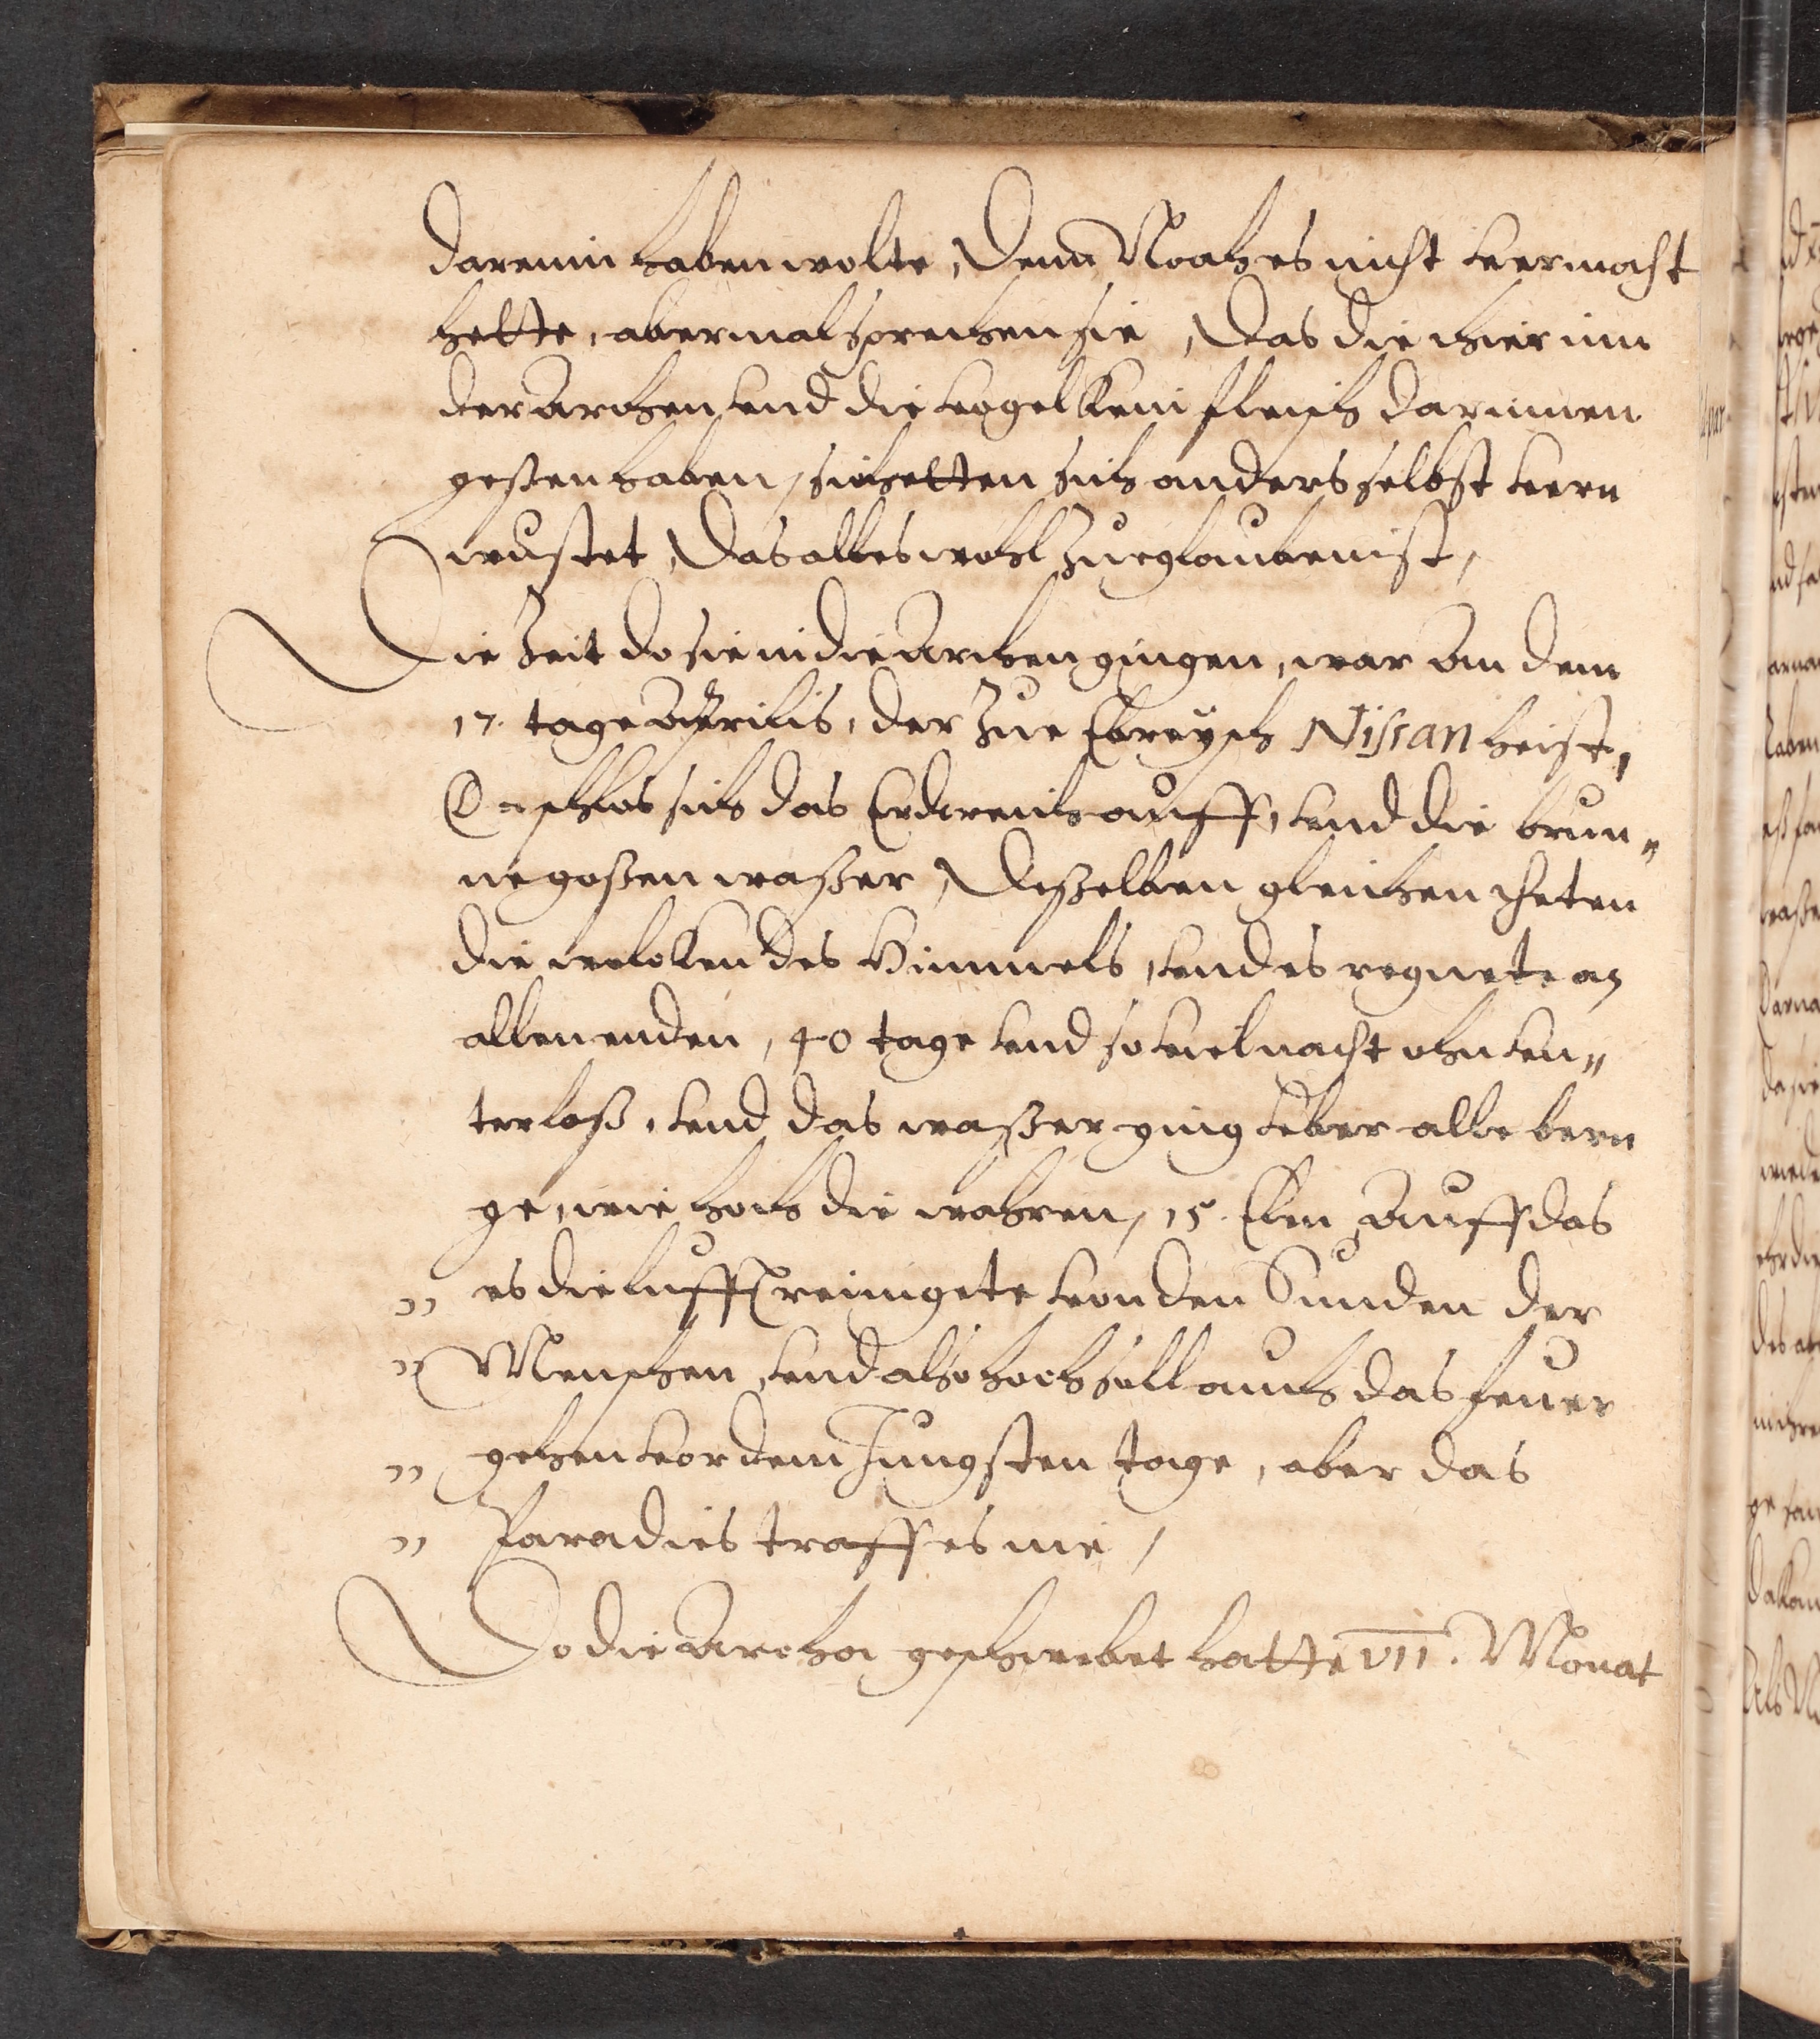 darenin haben wolte, Denn Noah es nicht vermocht
hette, abermal sprechen sie, Das die thier inn
der Archen vnd die vogel kein fleisch darinnen
geßen haben, sie hetten sich anders selbst ver„
wustet, Das alles wohl Zue glauben ist,
Die Zeit do sie in die Archen gingen, war Am dem
17. tage Apprilis, der Zue Ebreysch Nissan heist,
Do schlos sich das Erdreich auff, vnd die brun„
ne goßen waßer, Deßelben gleichen theten
die wolcken des Himmels, vnd es regnete an
allen enden, 40 tage vnd so viel nacht ohn vn„
terlaß, vnd das waßer ging vber alle ber„
ge, wie hoch die wahren, 15. Elen, Auff das
„ es die lufft reinigete von den Sunden der
„ Menschen, vnd also hoch soll auch das feuer
„ gehen vor dem Jungsten tage, aber das
„ Paradies traff es nie,
Do die Archa geschwebet hatte VII. Monat